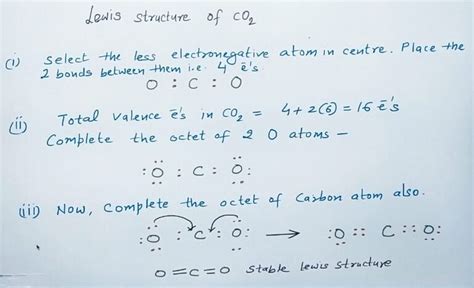 Lewis structure of CO₂
(i) Select the less electronegative atom in centre. Place the
2 bonds between them i.e. 4 ē's.
O : C : O
(ii) Total valence ē's in CO₂ = 4+2(6) = 16 ē's
Complete the octet of 2 O atoms –
:Ö : C : Ö:
(iii) Now, Complete the octet of Carbon atom also.
:Ö : C : Ö: → :O:: C ::O:
O=C=O Stable lewis structure